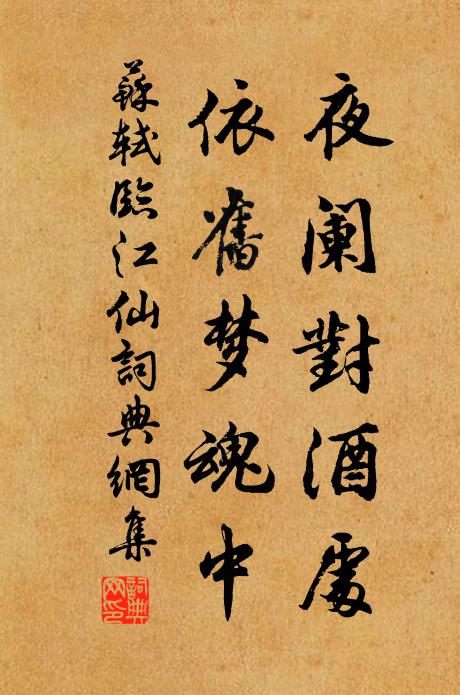 夜阑對酒處
依舊梦魂中
蘇軾臨江仙詞典網集
詞典网印